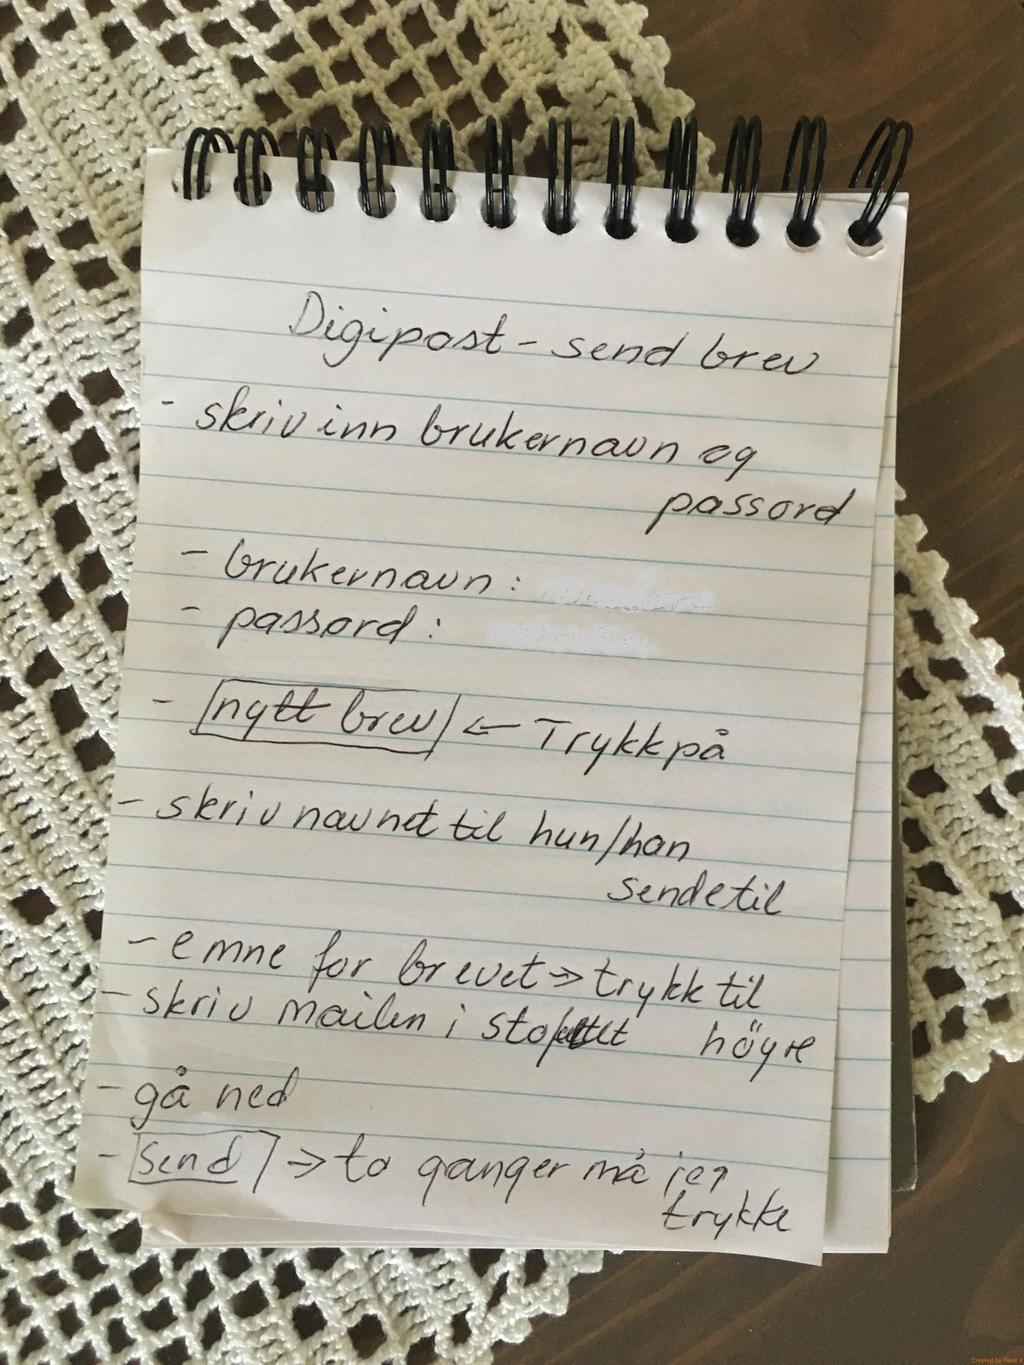 Digipost - send brev
- skriv inn brukernavn og
passord
- brukernavn:
- passord:
- nytt brev ← Trykk på
- skriv navnet til hun/han
sende til
- emne for brevet → trykk til
høyre
- skriv mailen i
- gå ned
- send → to ganger må jeg
trykke